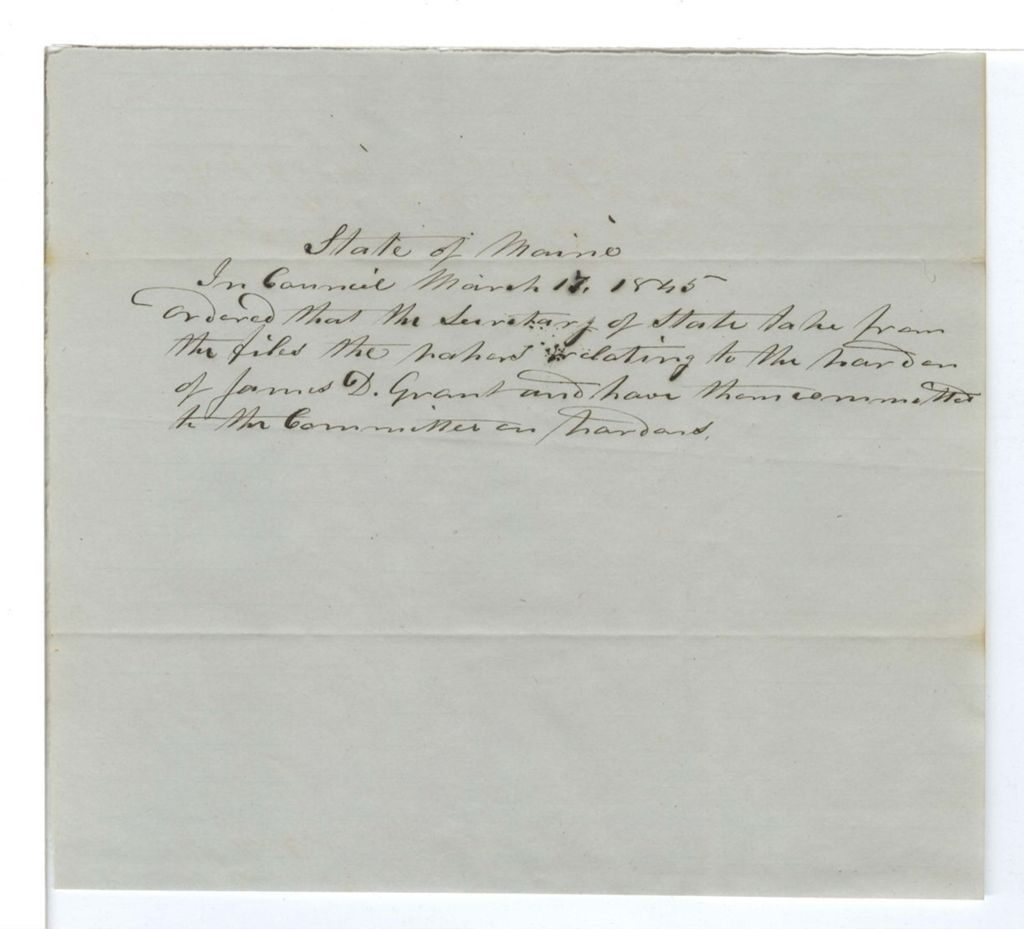 State of Maine
In Council March 17, 1845
Ordered that the Secretary of State take from
the files the papers relating to the pardon
of James D. Grant and have them committed
to the Committee on pardons.